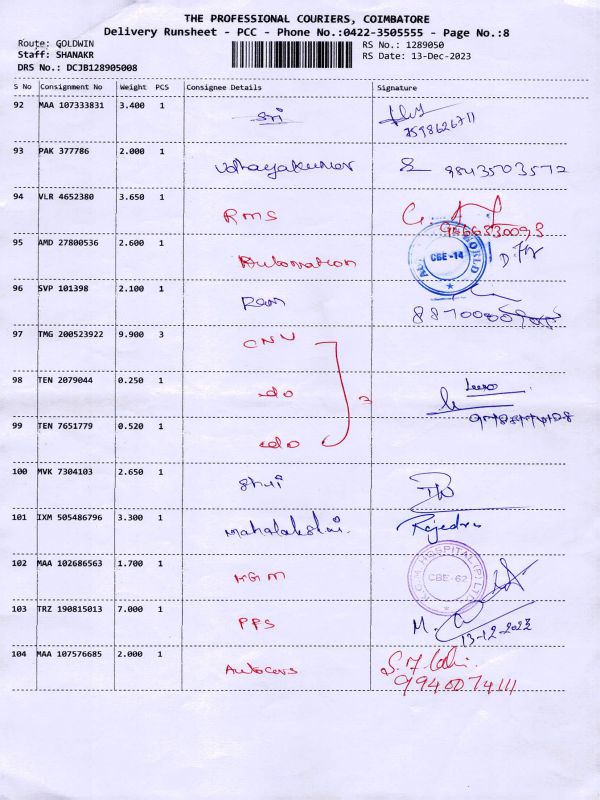 THE PROFESSIONAL COURIERS, COIMBATORE
Delivery Runsheet - PCC - Phone No.:0422-3505555 - Page No.:8
Route: GOLDWIN RS No.: 1289050
Staff: SHANAKR RS Date: 13-Dec-2023
DRS No.: DCJB128905008
S No Consignment No Weight PCS Consignee Details Signature
92 MAA 107333831 3.400 1
Sri
7598626711
93 PAK 377786 2.000 1
Udhayakumar 9843503572
94 VLR 4652380 3.650 1
RMS
9566330093
95 AMD 27800536 2.600 1
Automation CBE-14
WORLD
96 SVP 101398 2.100 1
Ram
97 TMG 200523922 9.900 3
CNV
98 TEN 2079044 0.250 1
do
99 TEN 7651779 0.520 1
do
100 MVK 7304103 2.650 1
Shri
101 IXM 505486796 3.300 1
Mahalakshmi. Rajedra
102 MAA 102686563 1.700 1
KGM HOSPITAL (P) LTD
CBE-62
103 TRZ 190815013 7.000 1
PPS M.
13-12-2023
104 MAA 107576685 2.000 1
Autocars
9940074111